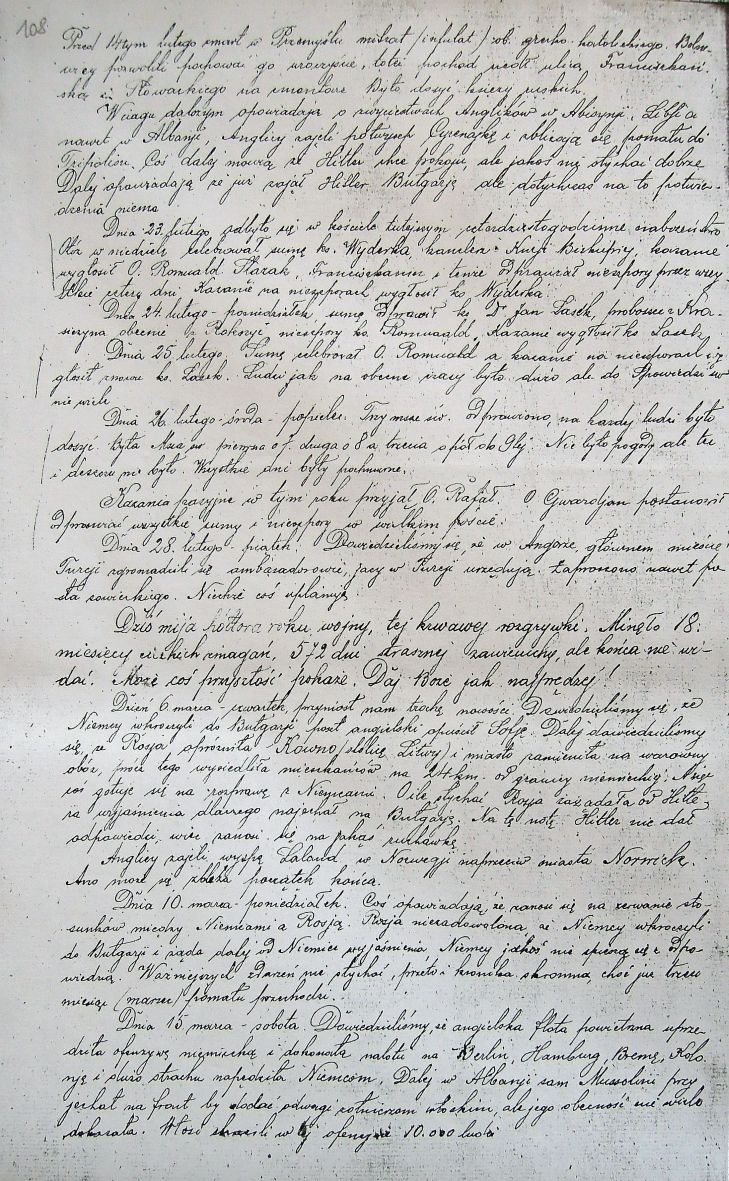 108
Przed 14tym lutego zmarł w Przemyślu mitrat /infułat/ ob. grecko katolickiego. Bolsze-
wicy pozwolili pochować go uroczyście, toteż pochód szedł ulicą Franciszkań-
ską i Słowackiego na cmentarz. Było dosyć księży ruskich.
W ciągu dalszym opowiadają o zwycięstwach Anglików w Abisynji, Libji a
nawet w Albanji, Anglicy zajęli półwysep Cyrenajkę i zbliżają się pomału do
Tripolisu. Coś dalej mówią że Hitler chce pokoju, ale jakoś nie słychać dobrze
Dalej opowiadają że już zajął Hitler Bułgarję ale dotychczas na to potwier-
dzenia niema
Dnia 23. lutego odbyło się w kościele tutejszym czterdziestogodzinne nabożeństwo
Otóż w niedzielę celebrował sumę ks. Wyderka, kanclerz Kurji Biskupiej, kazanie
wygłosił O. Romuald Starak, Franciszkanin i tenże odprawiał nieszpory przez wszy-
stkie cztery dni. Kazanie na nieszporach wygłosił ks. Wyderka.
Dnia 24. lutego - poniedziałek, sumę odprawił ks. Dr. Jan Łasek, proboszcz z Kra-
siczyna obecnie z Rokszyc nieszpory ks. Romuald, Kazanie wygłosił ks. Łasek
Dnia 25. lutego. Sumę celebrował O. Romuald a kazanie na nieszporach wy-
głosił znowu ks. Łasek. Ludzi jak na obecne czasy było dużo ale do Spowiedzi św
nie wiele
Dnia 26. lutego - środa - popielec. Trzy msze św. odprawiono, na każdej ludzi było
dosyć. Była Msza św pierwsza o 7. druga o 8 a trzecia o pół do 9tej. Nie było pogody ale też
i deszczu nie było. Wszystkie dni były pochmurne.
Kazania pasyjne w tym roku przyjął O. Rafał. O Gwardjan postanowił
odprawiać wszystkie sumy i nieszpory w wielkim poście.
Dnia 28. lutego - piątek. Dowiedzieliśmy się, że w Angorze, głównem mieście
Turcji zgromadzili się ambasadorowie, jacy w Turcji urzędują. Zaproszono nawet po-
sła sowieckiego. Niechże coś uplanują
Dziś mija półtora roku wojny, tej krwawej rozgrywki. Minęło 18.
miesięcy ciężkich zmagań, 572 dni strasznej zawieruchy, ale końca nie wi-
dać. Może coś przyszłość pokaże. Daj Boże jak najprędzej!
Dzień 6. marca - czwartek, przyniósł nam trochę nowości. Dowiedzieliśmy się, że
Niemcy wkroczyli do Bułgarji poseł angielski opuścił Sofję. Dalej dowiedzieliśmy
się, że Rosja, opróżniła Kowno /stolicę Litwy/ i miasto zamieniła na warowny
obóz, prócz tego wysiedliła mieszkańców na 24 km. od granicy niemieckiej. A więc
coś gotuje się na rozprawę z Niemcami. O ile słychać Rosja zażądała od Hitle-
ra wyjaśnienia dlaczego najechał na Bułgarję. Na tę notę Hitler nie dał
odpowiedzi, więc zanosi się na jakąś ruchawkę
Anglicy zajęli wyspę Laland w Norwegji naprzeciw miasta Norwick.
Ano może się zbliża początek końca.
Dnia 10. marca - poniedziałek. Coś opowiadają, że zanosi się na zerwanie sto-
sunków między Niemcami a Rosją. Rosja niezadowolona, że Niemcy wkroczyli
do Bułgarji i żąda dalej od Niemiec wyjaśnienia Niemcy jakoś nie spieszą się z odpo-
wiedzią. Ważniejszych zdarzeń nie słychać, przeto i kronika skromna, choć już trzeci
miesiąc (marzec) pomału przechodzi.
Dnia 15. marca - sobota. Dowiedzieliśmy, że angielska flota powietrzna uprze-
dziła ofenzywę niemiecką i dokonała nalotu na Berlin, Hamburg, Bremę, Kolo-
nję i dużo strachu napędziła Niemcom. Dalej w Albanji sam Mussolini przy-
jechał na front by dodać odwagi żołnierzom włoskim, ale jego obecność nie wiele
dokazała. Włosi stracili w tej ofenzywie 10.000 ludzi